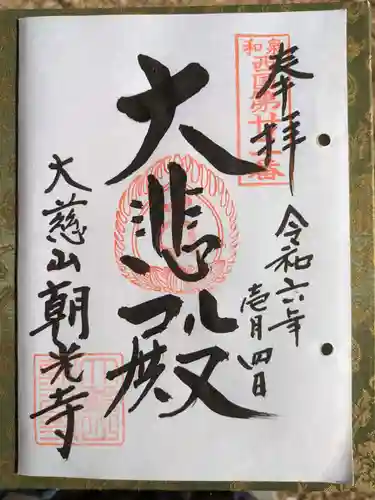 奉拝
和泉
西国第廿二番
令和六年
壱月四日
大悲殿
大慈山朝光寺